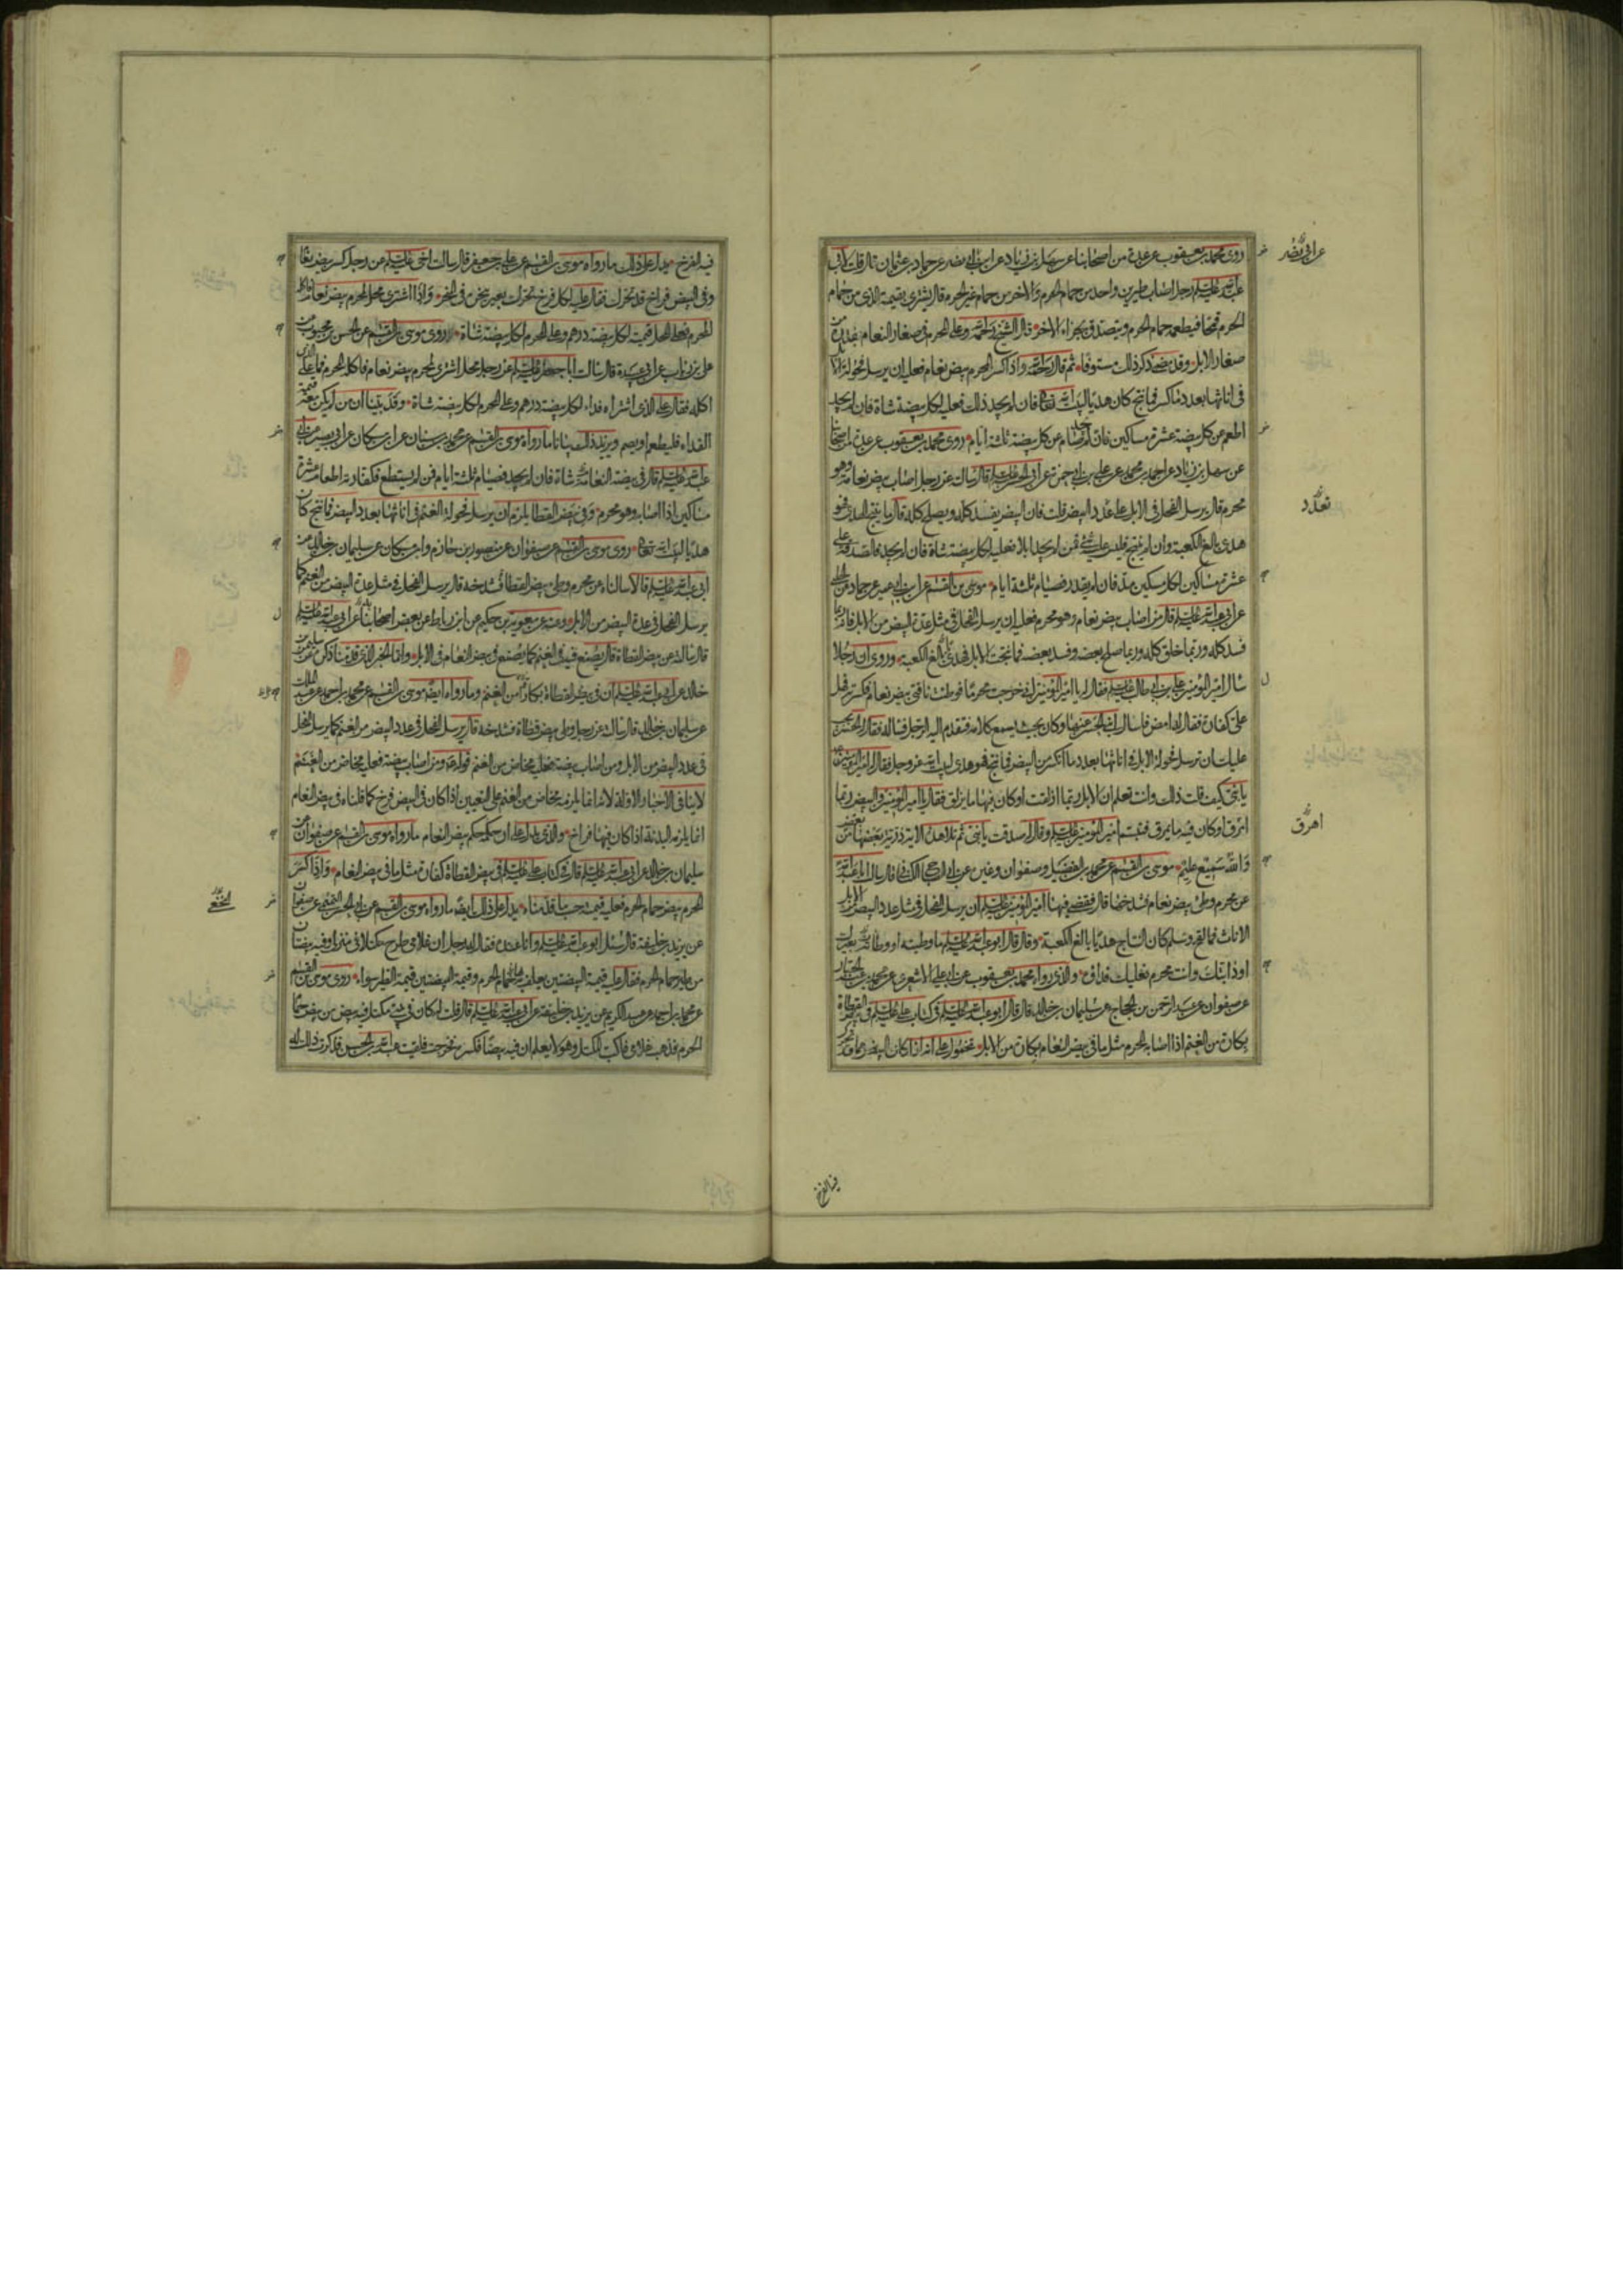 روى محمد بن يعقوب عن عدة من اصحابنا عن سهل بن زياد عن ابن ابي نصر عن حماد بن عثمان قال قلت لابي
عبد الله عليه السلام رجل اصاب طيرين واحد من حمام الحرم والاخر من حمام غير الحرم قال يشتري بقيمة الذي من حمام
الحرم قمحا فيطعمه حمام الحرم ويتصدق بجزاء الاخر قال الشيخ رحمه الله وعلى المحرم في صغار النعام بقدره من
صغار الابل وقد ذكر ذلك مستوفا ثم قال رحمه الله واذا كسر المحرم بيض نعام فعليه ان يرسل فحولة الابل
في اناثها بعدد ما كسر فما نتج كان هديا لبيت الله تعالى فان لم يجد ذلك فعليه لكل بيضة شاة فان لم يجد
اطعم عن كل بيضة عشرة مساكين فان لم يجد صام عن كل بيضة ثلثة ايام روى محمد بن يعقوب عن عدة من اصحابنا
عن سهل بن زياد عن احمد بن محمد عن علي بن ابي حمزة عن ابي الحسن عليه السلام قال سالته عن رجل اصاب بيض نعامة وهو
محرم قال يرسل الفحل في الابل على عدد البيض قلت فان البيض يفسد كله ويصلح كله قال ما ينتج الهدي فهو
هدي بالغ الكعبة وان لم ينتج فليس عليه شيء فمن لم يجد ابلا فعليه لكل بيضة شاة فان لم يجد فالصدقة على
عشرة مساكين لكل مسكين مد فان لم يقدر فصيام ثلثة ايام موسى بن القسم عن ابن ابي عمير عن حماد عن الحلبي
عن ابي عبد الله عليه السلام قال من اصاب بيض نعام وهو محرم فعليه ان يرسل الفحل في مثل عدة البيض من الابل فانه ربما
فسد كله وربما خلق كله وربما صلح بعضه وفسد بعضه فما نتجت الابل فهدي بالغ الكعبة وروى ان رجلا
سال امير المؤمنين علي بن ابي طالب عليه السلام فقال له يا امير المؤمنين اني خرجت محرما فوطئت ناقتي بيض نعام فكسرته فهل
علي كفارة فقال له امض فاسال ابني الحسن عنها وكان بحيث يسمع كلامه فتقدم اليه الرجل فساله فقال له الحسن يجب
عليك ان ترسل فحولة الابل في اناثها بعدد ما انكسر من البيض فما نتج فهو هدي لبيت الله عز وجل فقال له امير المؤمنين
يا بني كيف قلت ذلك وانت تعلم ان الابل ربما ازلقت او كان فيها ما يزلق فقال يا امير المؤمنين والبيض ربما
امرق او كان فيه ما يمرق فتبسم امير المؤمنين عليه السلام وقال له صدقت يا بني ثم تلا هذه الاية ذرية بعضها من بعض
والله سميع عليم موسى بن القسم عن محمد بن الفضيل وصفوان وغيره عن ابي الصباح الكناني قال سالت ابا عبد الله
عن محرم وطئ بيض نعام فشدخها قال قضى فيها امير المؤمنين عليه السلام ان يرسل الفحل في مثل عدد البيض من الابل
الاناث فما لقح وسلم كان النتاج هديا بالغ الكعبة وقال قال ابو عبد الله عليه السلام ما وطئته او وطئه بعيرك
او دابتك وانت محرم فعليك فداؤه والذي رواه محمد بن يعقوب عن ابي علي الاشعري عن محمد بن عبد الجبار
عن صفوان عن عبد الرحمن بن الحجاج عن سليمان بن خالد قال قال ابو عبد الله عليه السلام في كتاب علي عليه السلام في بيض القطاة
بكارة من الغنم اذا اصابه المحرم مثل ما في بيض النعام بكارة من الابل فمحمول على انه اذا كان البيض مما قد تحرك
عن ابي نصر
تعدد
اهرق
فيه الفرخ
فيه الفرخ يدل على ذلك ما رواه موسى بن القسم عن علي بن جعفر قال سالت اخي عليه السلام عن رجل كسر بيض نعام
وفي البيض فراخ قد تحرك فقال عليه لكل فرخ تحرك بعير ينحره في المنحر واذا اشترى محل لمحرم بيض نعام فاكله
المحرم فعلى المحل قيمته لكل بيضة درهم وعلى المحرم لكل بيضة شاة روى موسى بن القسم عن الحسن بن محبوب عن
علي بن رئاب عن ابي عبيدة قال سالت ابا جعفر عليه السلام عن رجل محل اشترى لمحرم بيض نعام فاكله المحرم فما على الذي
اكله فقال على الذي اشتراه فداء لكل بيضة درهم وعلى المحرم لكل بيضة شاة وقد بينا ان من لم يكن معه قيمة
الفداء فليطعم او يصم ويزيد ذلك بيانا ما رواه موسى بن القسم عن محمد بن سنان عن ابن مسكان عن ابي بصير عن ابي
عبد الله عليه السلام قال في بيضة النعامة شاة فان لم يجد فصيام ثلثة ايام فمن لم يستطع فكفارته اطعام عشرة
مساكين اذا اصابه وهو محرم وفي بيض القطا يلزم ان يرسل فحولة الغنم في اناثها بعدد البيض فما نتج كان
هديا لبيت الله تعالى روى موسى بن القسم عن صفوان عن منصور بن حازم وابن مسكان عن سليمان بن خالد عن
ابي عبد الله عليه السلام قالا سالناه عن محرم وطئ بيض القطاة فشدخه قال يرسل الفحل في مثل عدة البيض من الغنم كما
يرسل الفحل في عدة البيض من الابل وعنه عن معوية بن حكيم عن ابن رباط عن بعض اصحابنا عن ابي عبد الله عليه السلام
قال سالته عن بيض القطاة قال يصنع فيه في الغنم كما يصنع في بيض النعام في الابل واما الخبر الذي قدمنا ذكره عن سليمان بن
خالد عن ابي عبد الله عليه السلام ان في بيض القطاة بكارة من الغنم وما رواه ايضا موسى بن القسم عن محمد بن احمد عن عبد الملك
عن سليمان بن خالد قال سالته عن رجل وطئ بيض قطاة فشدخه قال يرسل الفحل في عدد البيض من الغنم كما يرسل الفحل
في عدد البيض من الابل ومن اصاب بيضة فعليه مخاض من الغنم قوله ومن اصاب بيضة فعليه مخاض من الغنم
لا ينافي الاخبار الاولة لانه انما يلزمه مخاض من الغنم على التعيين اذا كان في البيض فرخ كما قلناه في بيض النعام
انما يلزمه البدنة اذا كان فيها فراخ والذي يدل على ان حكمه حكم بيض النعام ما رواه موسى بن القسم عن صفوان عن
سليمان بن خالد عن ابي عبد الله عليه السلام قال في كتاب علي عليه السلام في بيض القطاة كفارة مثل ما في بيض النعام واذا كسر
المحرم بيض حمام الحرم فعليه قيمته حسب ما قدمناه يدل على ذلك ايضا ما رواه موسى بن القسم عن ابي الحسن التميمي عن صفوان
عن يزيد بن خليفة قال سئل ابو عبد الله عليه السلام وانا عنده فقال له رجل ان غلامي طرح مكتلا في منزلي وفيه بيضتان
من طير حمام الحرم فقال عليه قيمة البيضتين يعلف به حمام الحرم وقيمة البيضتين قيمة الطير سواء روى موسى بن القسم
عن محمد بن احمد عن عبد الكريم عن يزيد بن خليفة عن ابي عبد الله عليه السلام قال قلت له كان في بيتي مكتل فيه بيض من بيض حمام
الحرم فذهب غلامي فاكب المكتل وهو لا يعلم ان فيه بيضا فكسره فخرجت فلقيت عبد الله بن الحسن فذكرت ذلك له
النخعي